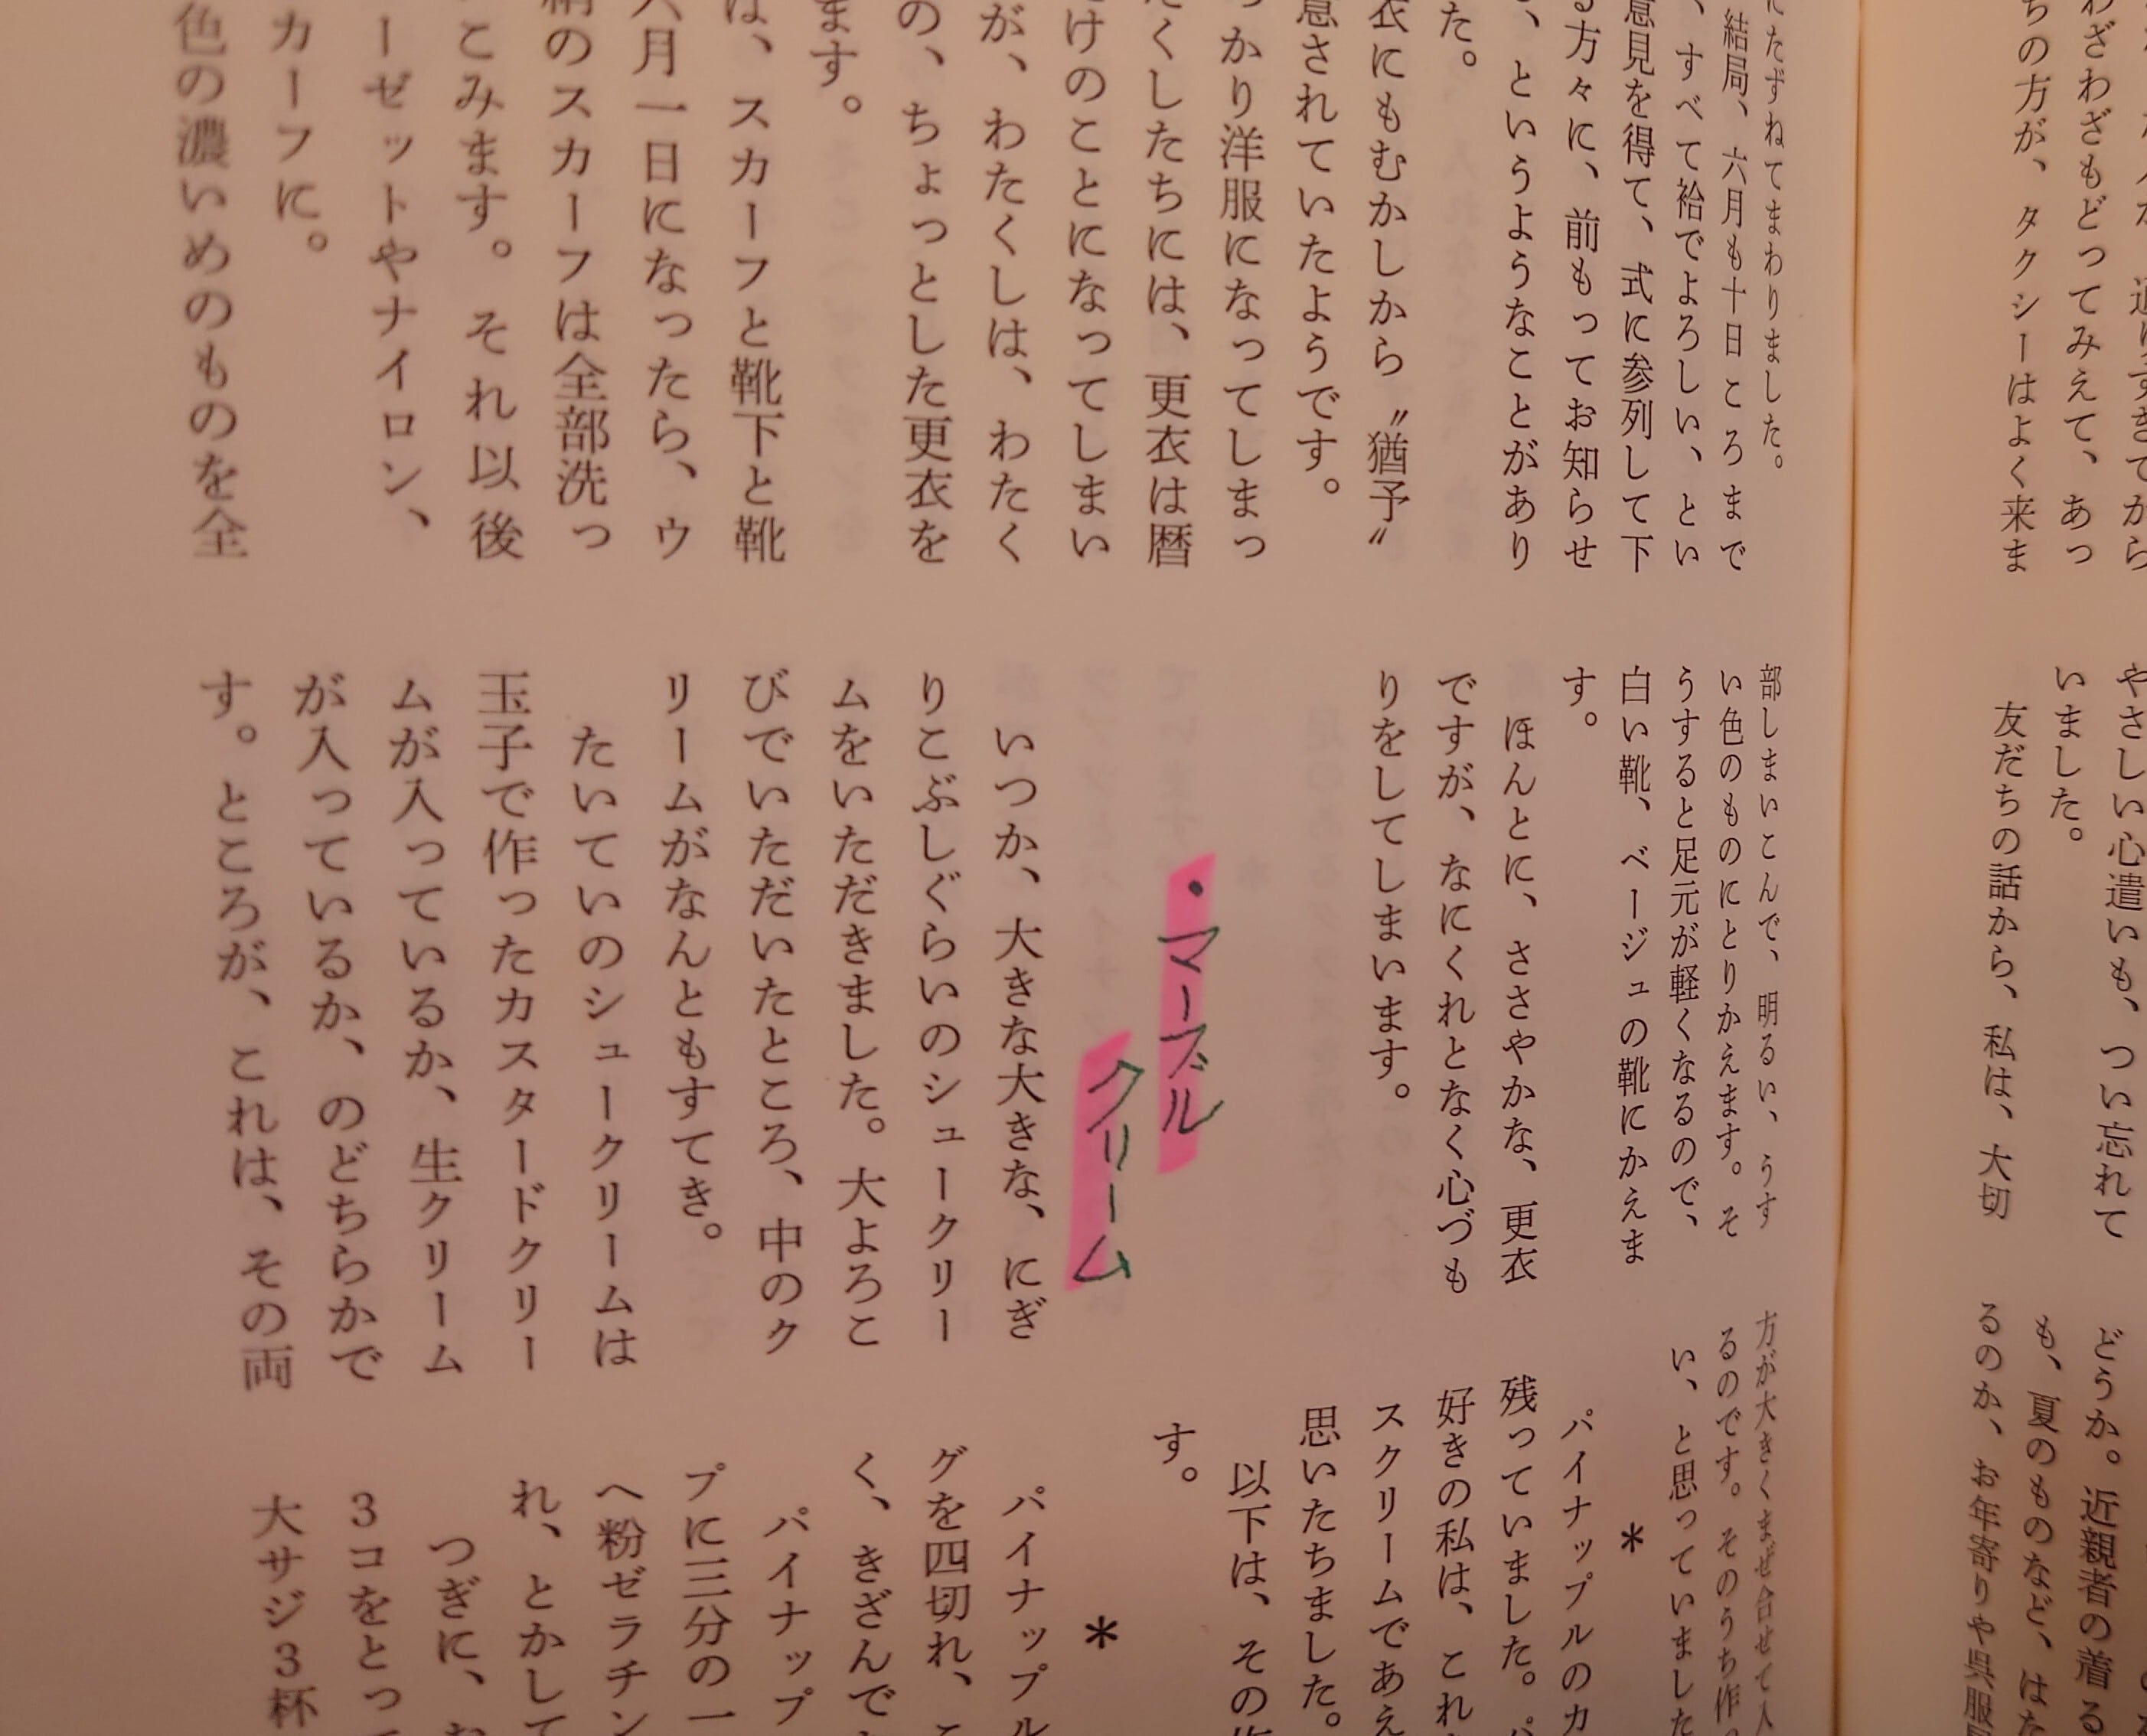 やさしい心遣いも、つい忘れて
いました。
友だちの話から、私は、大切
わざわざもどってみえて、あっ
ちの方が、タクシーはよく来ま
どうか。近親者の着る
も、夏のものなど、はた
るのか、お年寄りや呉服屋
にたずねてまわりました。
結局、六月も十日ころまで
、すべて袷でよろしい、とい
意見を得て、式に参列して下
る方々に、前もってお知らせ
、というようなことがあり
た。
衣にもむかしから〝猶予〟
意されていたようです。
っかり洋服になってしまっ
たくしたちには、更衣は暦
けのことになってしまい
が、わたくしは、わたく
の、ちょっとした更衣を
ます。
は、スカーフと靴下と靴
六月一日になったら、ウ
絹のスカーフは全部洗っ
こみます。それ以後
ーゼットやナイロン、
カーフに。
色の濃いめのものを全
部しまいこんで、明るい、うす
い色のものにとりかえます。そ
うすると足元が軽くなるので、
白い靴、ベージュの靴にかえま
す。
ほんとに、ささやかな、更衣
ですが、なにくれとなく心づも
りをしてしまいます。
・マーブル
クリーム
いつか、大きな大きな、にぎ
りこぶしぐらいのシュークリー
ムをいただきました。大よろこ
びでいただいたところ、中のク
リームがなんともすてき。
たいていのシュークリームは
玉子で作ったカスタードクリー
ムが入っているか、生クリーム
が入っているか、のどちらかで
す。ところが、これは、その両
方が大きくまぜ合せて入
るのです。そのうち作
い、と思っていました
＊
パイナップルのカ
残っていました。パ
好きの私は、これ
スクリームであえ
思いたちました。
以下は、その作
す。
＊
パイナップル
グを四切れ、こ
く、きざんで
パイナップ
プに三分の一
へ粉ゼラチン
れ、とかして
つぎに、
3コをとって
大サジ3杯